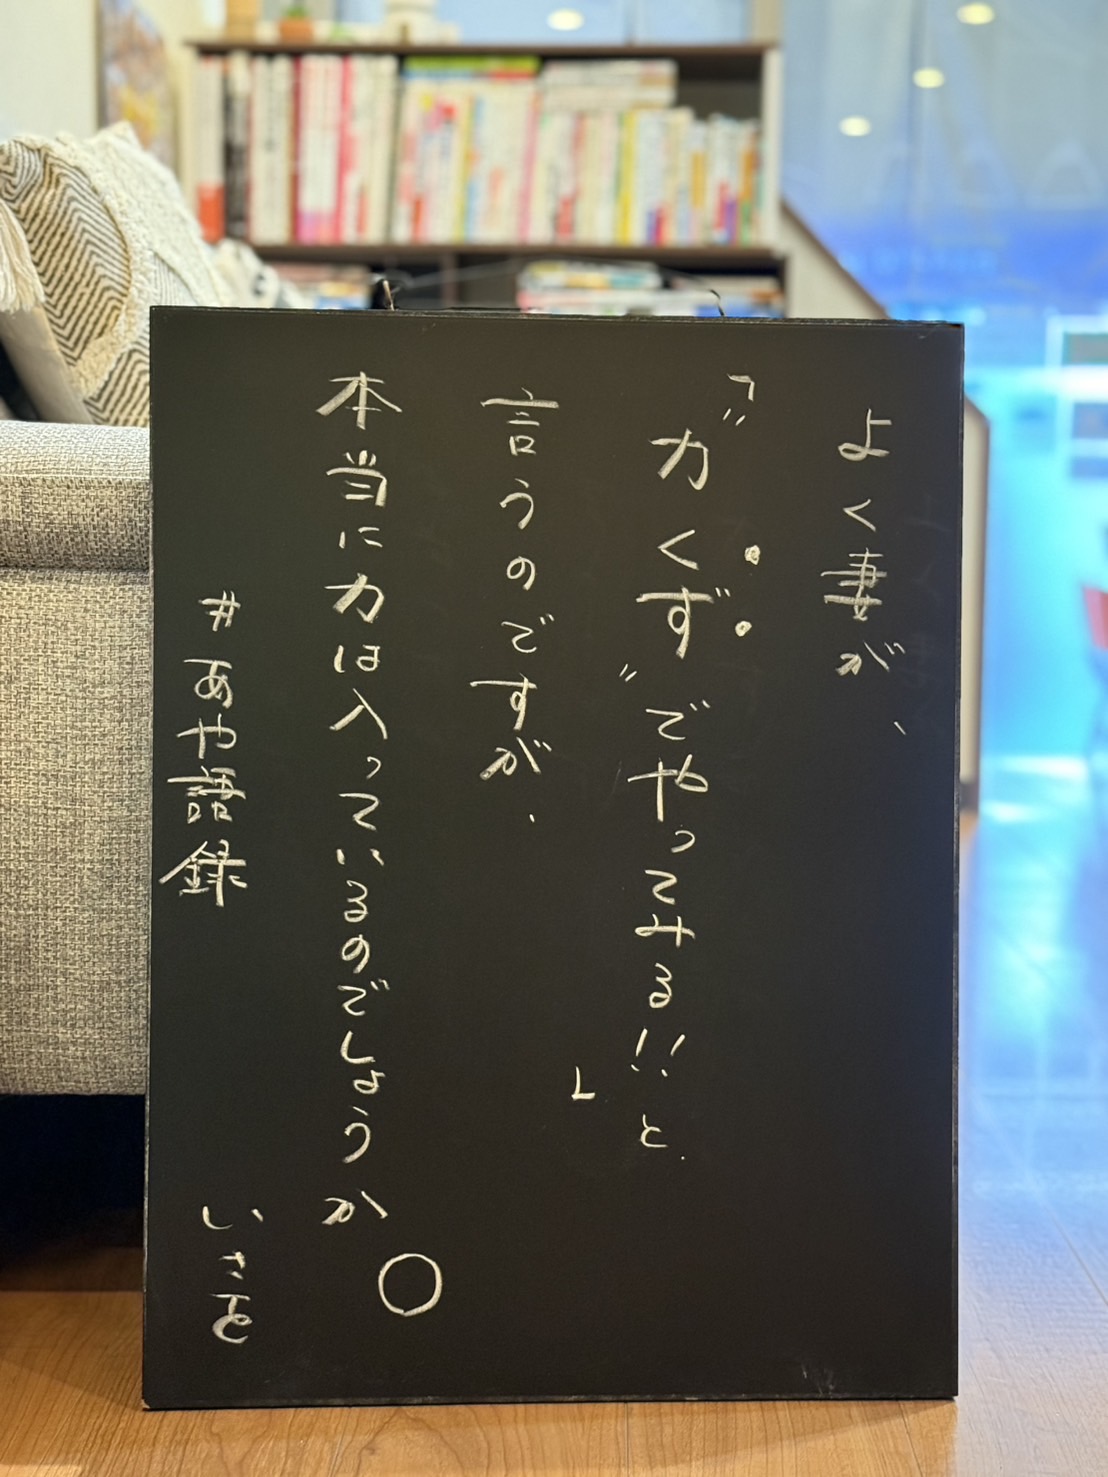 よく妻が、
「〝力くず〟でやってみる!!」と、
言うのですが、
本当に力は入っているのでしょうか。
#あや語録
いさを